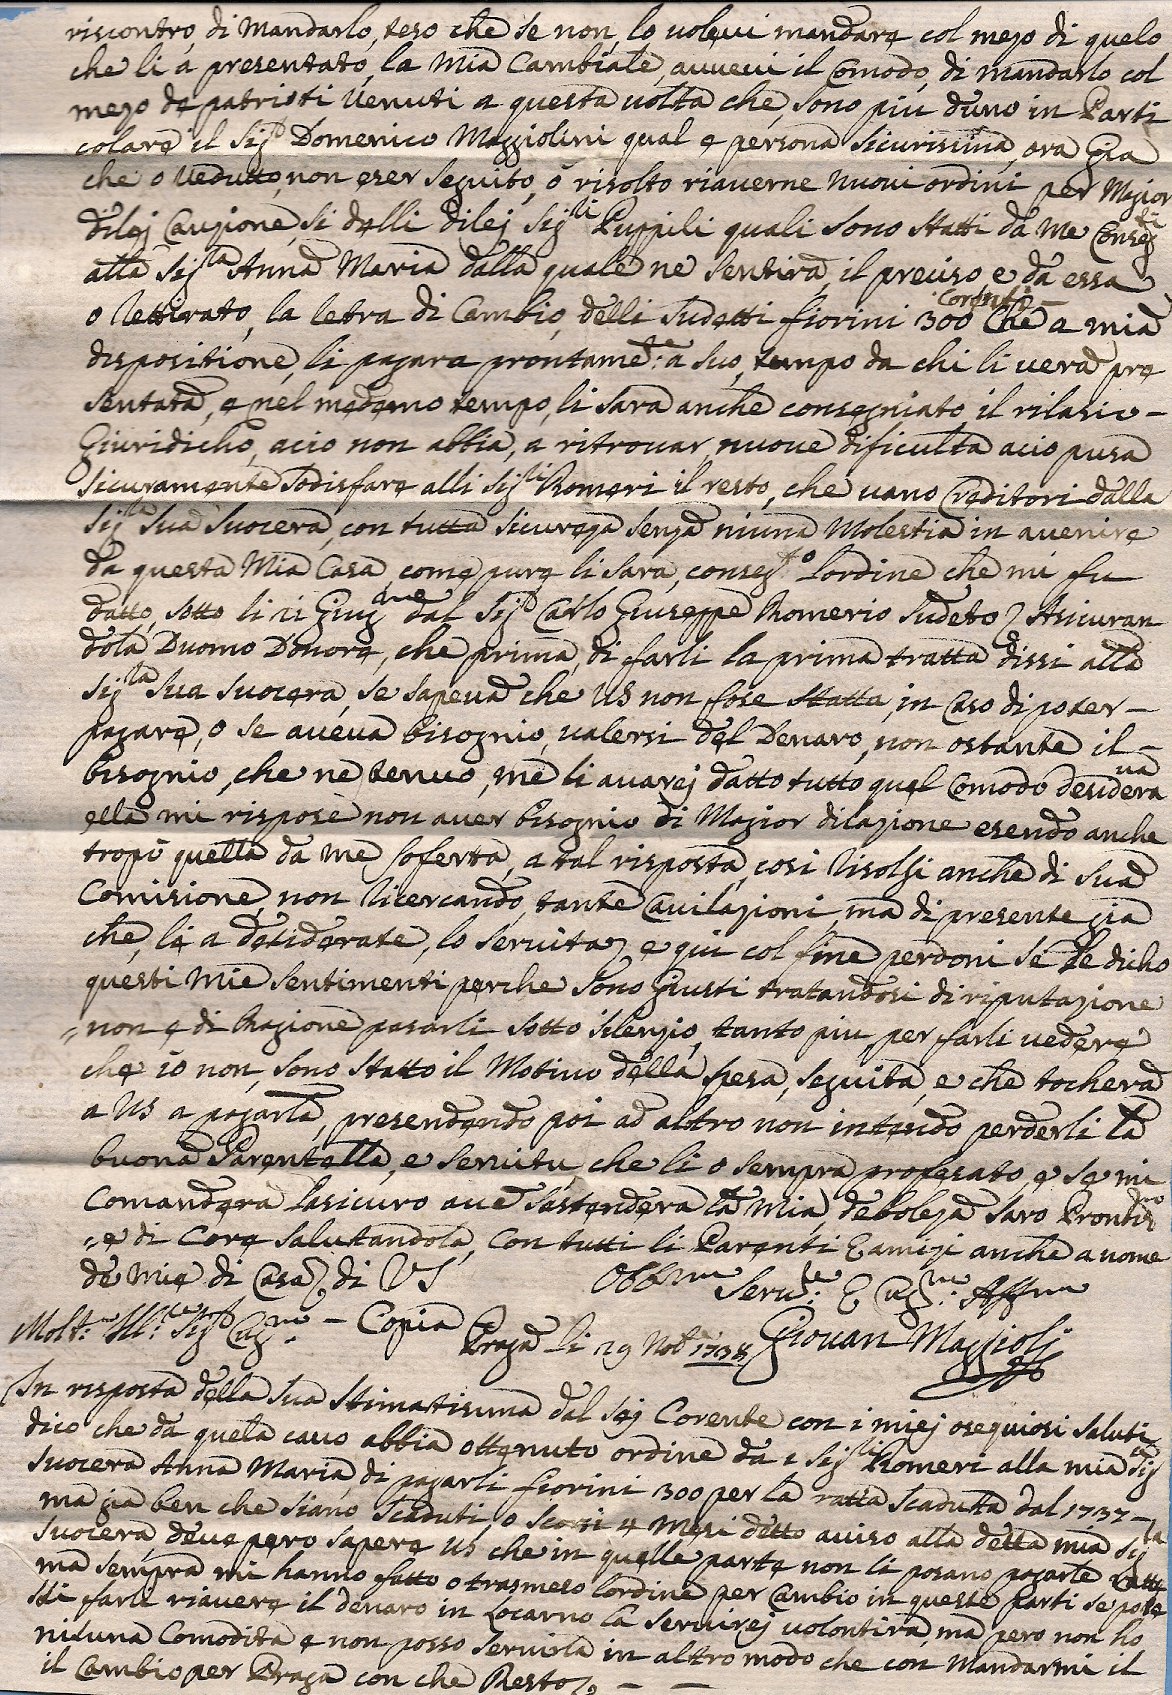 riscontro, di Mandarlo, teso che se non lo volevi mandare col mezo di quelo
che li á presentato, la Mia Cambiale, avevi il Comodo, di mandarlo col
mezo de patrioti Venuti a questa volta che, sono piu d'uno in Parti
colare il Sig.r Domenico Maggiolini qual e persona Sicurissima, ora Gia
che o Vedutto, non eser seguito, ó risolto riaverne nuovi ordini per Magior
di lej Cauzione, si delli di lej Sig.li Puppili quali sono statti da me Conseg.ti
alla Sig.la Anna Maria dalla quale ne sentira, il preciso e da essa
o rettirato, la letra di Cambio, delli Sudetti fiorini 300 Che a mia
dispositione, li pagara prontame.te a suo, tempo da chi li vera pre
sentata, e nel medemo tempo, li sara anche consegniato il rilasio -
Giuridicho, acio non abbia, a ritrovar, nuove dificulta acio pusa
Sicuramente Sodisfare alli Sig.li Romeri il resto, che vano Creditori dalla
Sig.la Sua Suocera, con tutta sicureza senza niuna Molestia in avenire
da questa Mia Casa, come pure li sara, conseg.to L'ordine che mi fu
datto, sotto li 21 Giug.no dal Sig.r Carlo Giuseppe Romerio Sudeto, Asicuran
dola D'uomo D'onore, che prima, di farli la prima tratta dissi alla
Sig.la Sua Suocera, se sapeva che VS non fose statta, in Caso di poter -
pagare, o se aveva bisognio, valersi del Denaro, non ostante il -
bisognio, che ne tenevo, me li avarej datto tutto quel Comodo desidera
va
ella mi rispose non aver bisognio di Magior dilazione esendo anche
tropo quella da me soferta, a tal risposta, cosi risolsi anche di sua
Comisione, non ricercando, tante Cavilazioni, ma di presente gia
che, le a desiderate, lo servita, e qui col fine perdoni se le dicho
questi Mie sentimenti perche sono giusti tratandosi di riputazione
non e di Ragione pasarli sotto silenzio, tanto piu, per farli vedere
che io non, sono statto il Motivo della spesa, seguita, e che tochera
a VS a pagarla, presendendo poi ad altro non intendo perderli la
buona Parentella, e servitu, che li o sempra profesato, e se mi
Comandera L'asicuro ave s'estendera la Mia, deboleza saro Prontis.mo
e di Core salutandola, Con tutti li Parenti E amizi anche a nome
de Mie di Casa, di VS Obb.mo Serv.re E Cug.no Aff.mo
Giovan Maggiolj
Molt.o Ill.re Sig.r Cug.no - Copia Praga li 29 Nob 1738
In risposta della Sua Stimatisima dal Sej Corente con i miej osequiosi saluti
dico che da quela cavo abbia ottenuto ordine da i Sig.li Romeri alla mia Sig.ra
Suocera Anna Maria, di pagarli fiorini 300 per la ratta Scadutta dal 1737 -
ma gia ben che siano Scaduti o scorsi 4 Mesi detto aviso alla detta mia Sig.la
Suocera, deve pero sapere VS che in quelle parte non li posano pagarle ratte
ma sempra mi hanno fatto o trasmeso L'ordine per Cambio in queste parti se pote
sti farli riavere il denaro in Locarno La Servirej volontira, ma pero non ho
niduna Comodita e non posso servirla in altro modo che con Mandarmi il
il Cambio per Praga con che Resto, - -